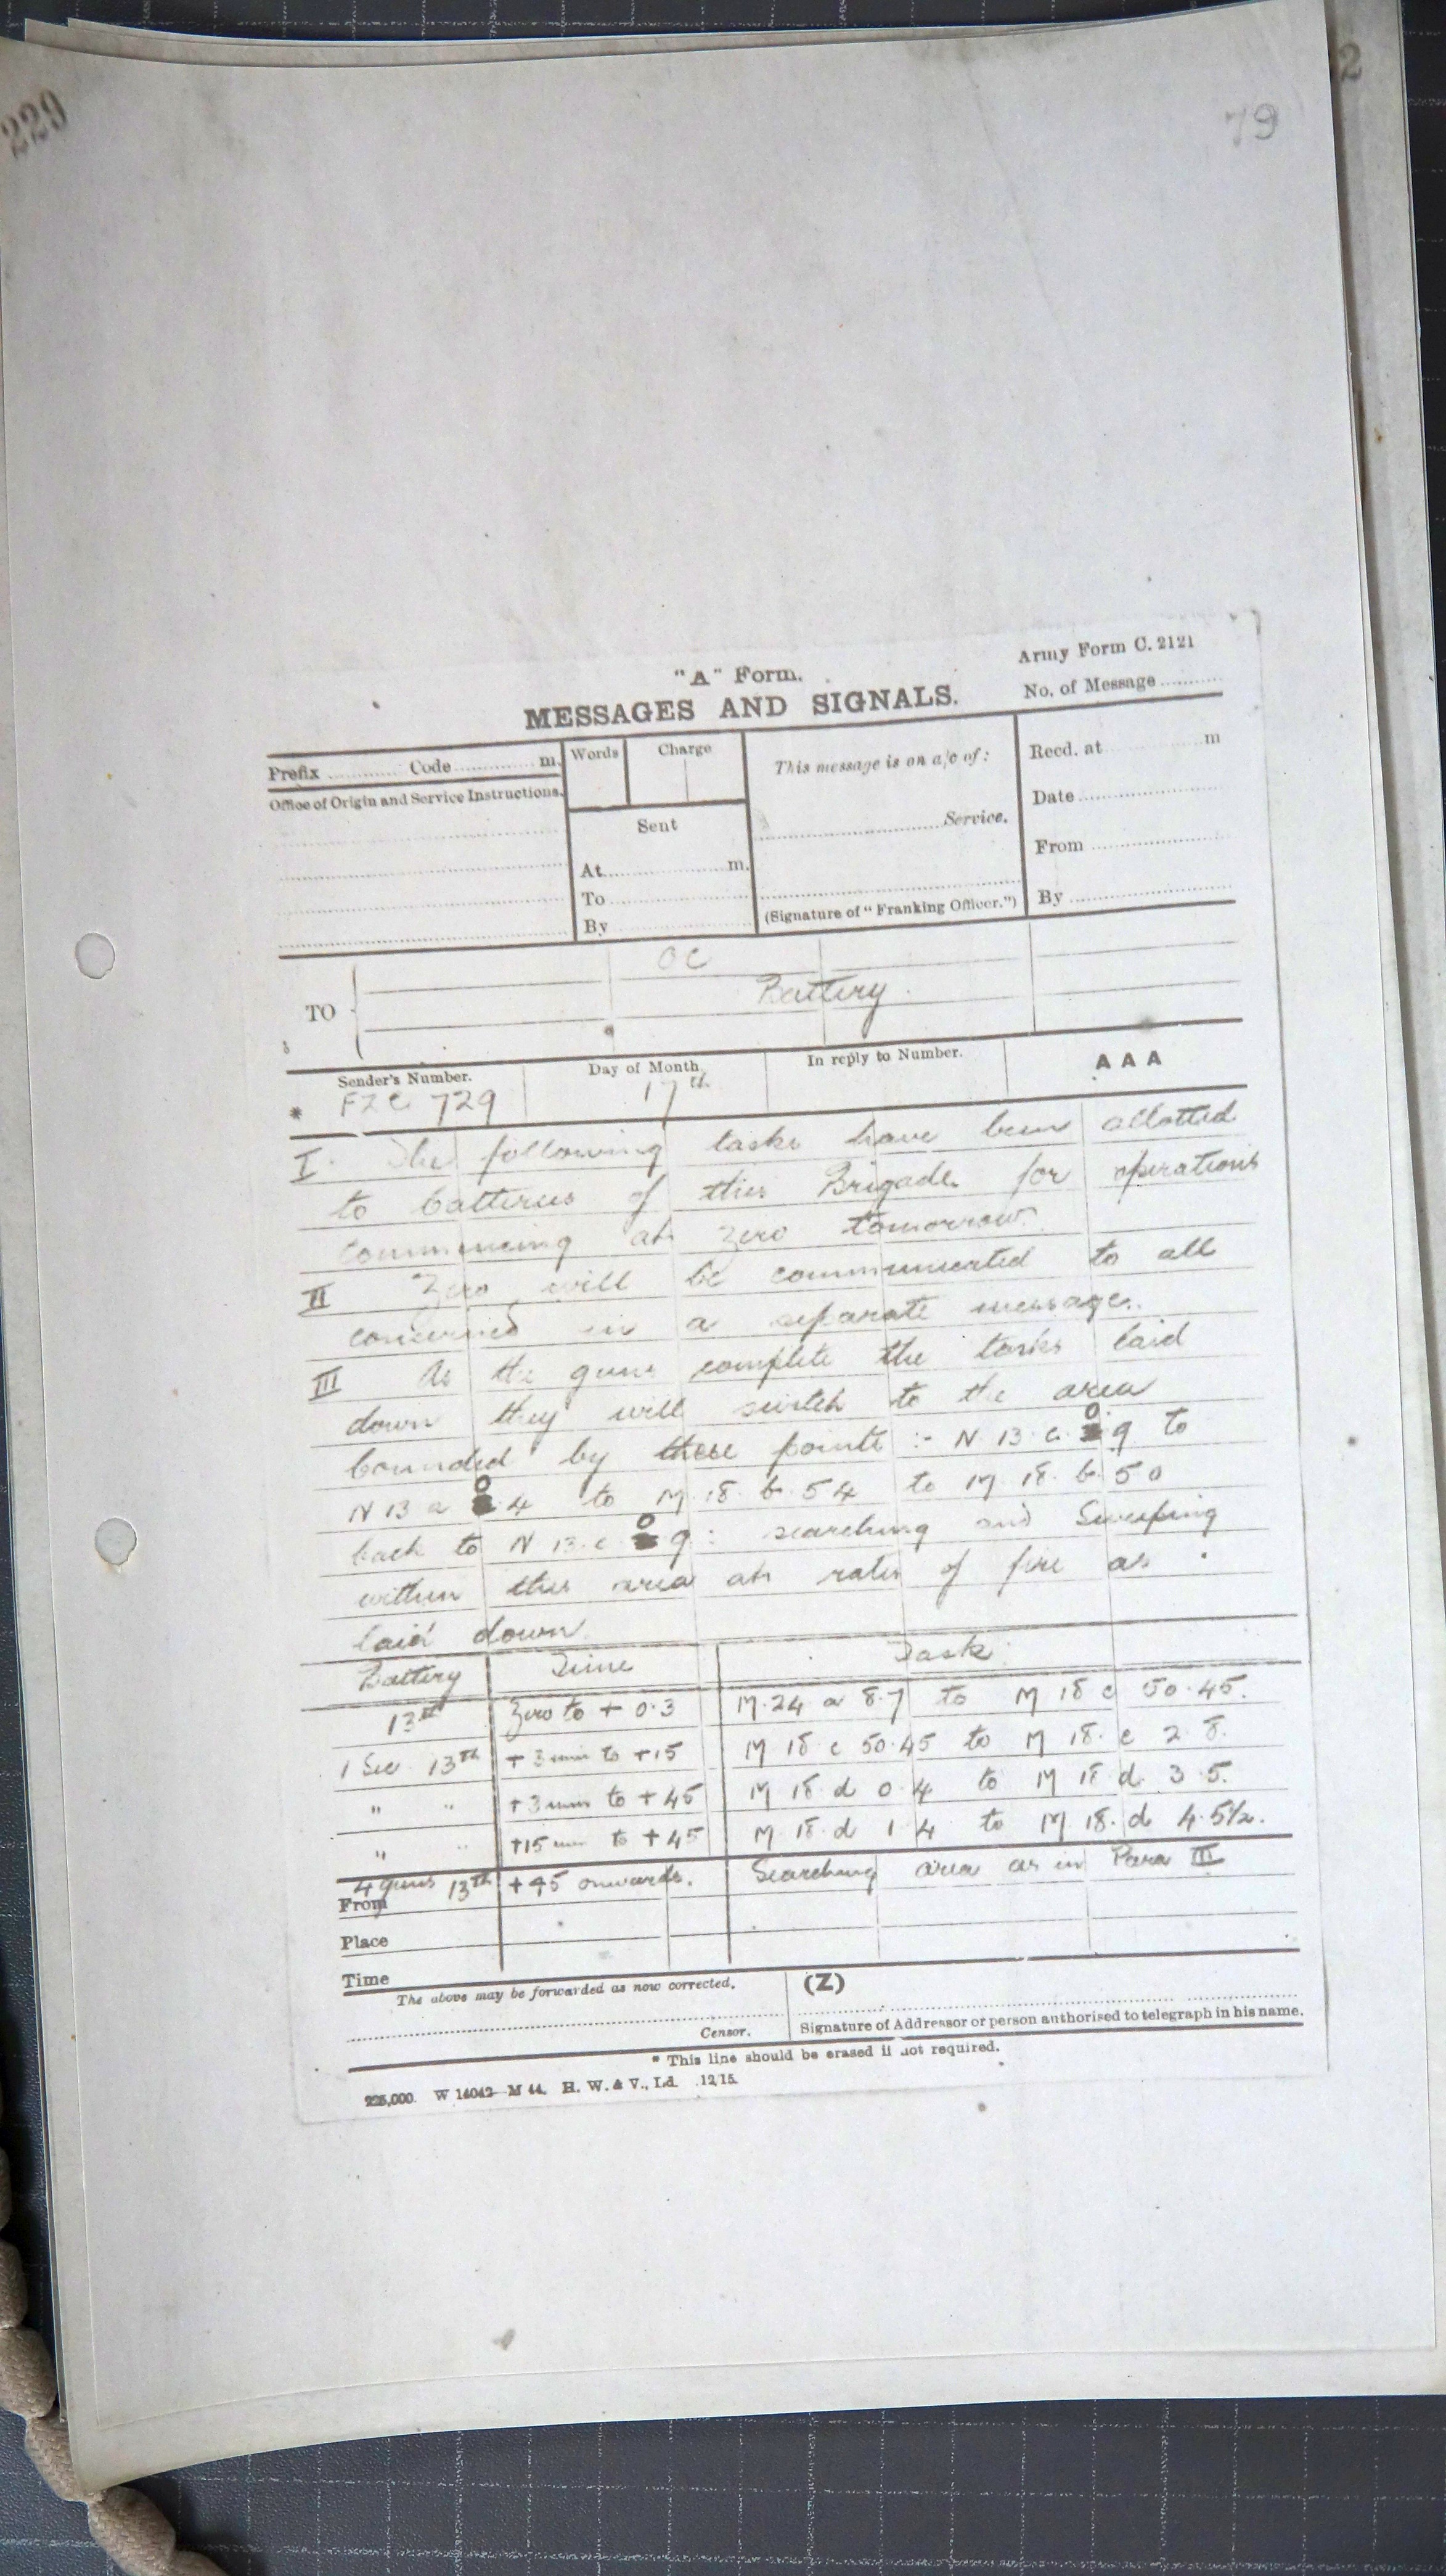 220
2
79
"A" Form.
Army Form C. 2121
MESSAGES AND SIGNALS.
No. of Message
Prefix Code m.
Words Charge
This message is on a/c of:
Recd. at m
Office of Origin and Service Instructions.
Sent
Service.
Date
At m.
From
To
By
(Signature of "Franking Officer.")
By
TO
OC
Battery.
Sender's Number.
Day of Month
In reply to Number.
AAA
* FZC 729
17th
I. The following tasks have been allotted
to batteries of this Brigade for operations
commencing at zero tomorrow.
II Zero will be communicated to all
concerned in a separate message.
III As the guns complete the tasks laid
down they will switch to the area
bounded by these points :- N 13 c 0.9 to
N 13 a 0.4 to M 18 b 54 to M 18. b. 50
back to N 13. c 0 9 : searching and Sweeping
within this area at rates of fire as
laid down.
Battery Time Task.
13th Zero to + 0.3 M.24 a 8.7 to M 18 c 50.45.
1 Sec 13th + 3 min to +15 M 18 c 50.45 to M 18. c 2.8.
" " +3 min to +45 M 18 d 0.4 to M 18 d. 3.5.
" " +15 min to +45 M 18 d 1 4 to M 18. d 4.5½.
4 guns 13th +45 onwards. Searching area as in Para III
From
Place
Time
The above may be forwarded as now corrected.
(Z)
Censor.
Signature of Addressor or person authorised to telegraph in his name.
* This line should be erased if not required.
225,000. W 14042—M 44. H. W. & V., Ld. 12/15.